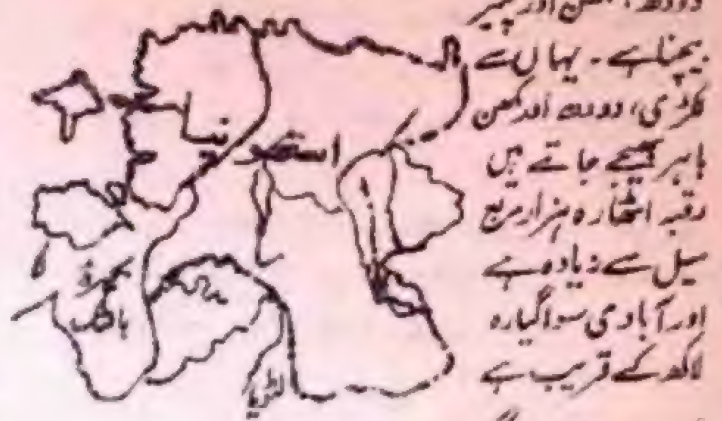 دودھ، مکھن اور پنیر
بیچنا ہے۔ یہاں سے
لکڑی، دودھ اور مکھن
باہر بھیجے جاتے ہیں
رقبہ اٹھارہ ہزار مربع
میل سے زیادہ ہے
اور آبادی سوا گیارہ
لاکھ کے قریب ہے
استھونیا
بحیرۂ
بالٹک
لٹویا